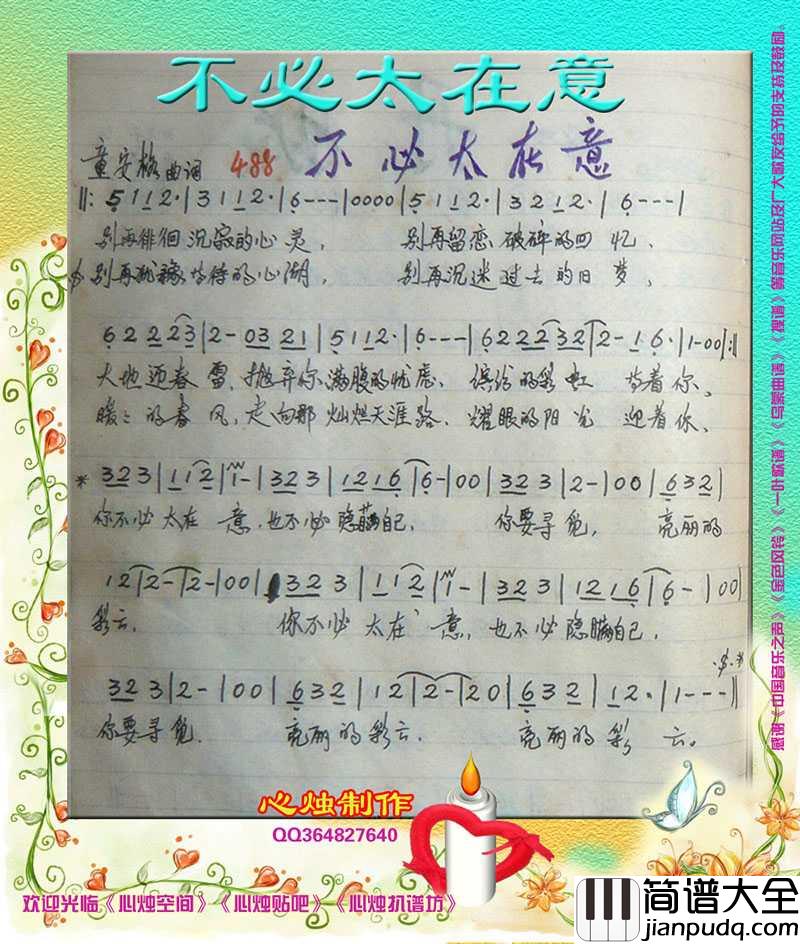 不必太在意
童安格曲词 488 不必太在意
‖: 5 1 1 2· | 3 1 1 2· | 6 - - - | 0 0 0 0 | 5 1 1 2· | 3 2 1 2· | 6 - - - |
别再徘徊沉寂的心灵， 别再留恋破碎的回忆、
别再犹豫等待的心湖， 别再沉迷过去的旧梦，
6 2 2 2 2 3 | 2 - 0 3 2 1 | 5 1 1 2· | 6 - - - | 6 2 2 2 3 2 | 2 - 1 6· | 1 - 0 0 :‖
大地迎春雷，抛弃你满腹的忧虑、缤纷的彩虹 等着你、
暖暖的春风，走向那灿烂天涯路、耀眼的阳光 迎着你、
* 3 2 3 | 1 1 2 | 1 - | 3 2 3 | 1 2 1 6 | 6 - | 0 0 | 3 2 3 | 2 - | 0 0 | 6 3 2 |
你不必太在意，也不必隐瞒自己， 你要寻觅， 亮丽的
1 2 | 2 - | 2 - | 0 0 | 3 2 3 | 1 1 2 | 1 - | 3 2 3 | 1 2 1 6 | 6 - | 0 0 |
彩云。 你不必太在意，也不必隐瞒自己，
3 2 3 | 2 - | 0 0 | 6 3 2 | 1 2 | 2 - | 2 0 | 6 3 2 | 1 2· | 1 - - - ‖
你要寻觅 亮丽的彩云. 亮丽的彩 云。
心烛制作
QQ364827640
欢迎光临《心烛空间》《心烛贴吧》《心烛扒谱坊》
感谢《中国音乐之声》《金色风铃》《一叶秋谱》《乌蒙曲谱》《搜谱》等音乐网站及广大歌友给予的支持及鼓励。
简谱大全
jianpudq.com